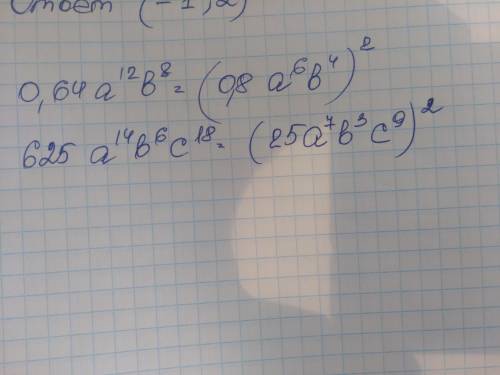 Ответ (-1; 2)
0,64 a¹²b⁸ = (0,8 a⁶b⁴)²
625 a¹⁴b⁶c¹⁸ = (25a⁷b³c⁹)²